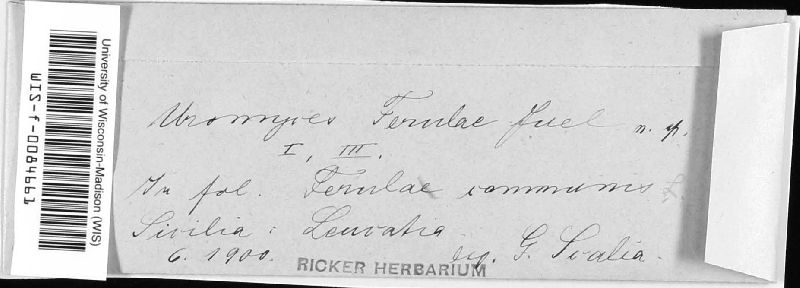 University of Wisconsin-Madison (WIS)
WIS-f-0084661
Uromyces Ferulae Juel n. sp.
I, III.
In fol. Ferulae communis L.
Sicilia: Leucatia
6. 1900. leg. G. Scalia.
RICKER HERBARIUM